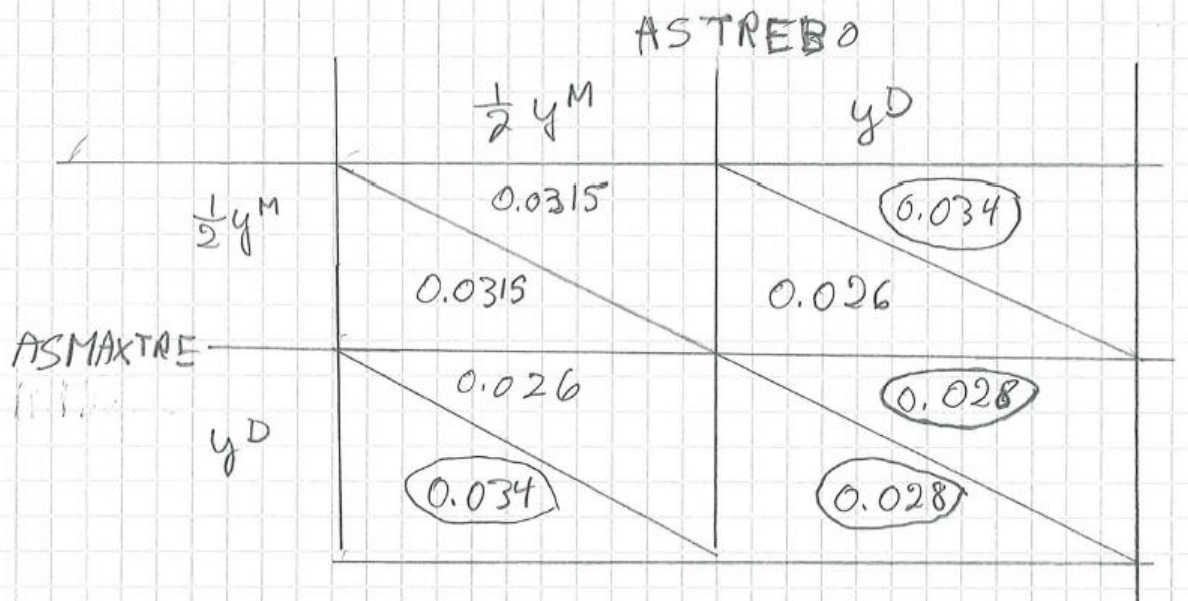 ASTREBO
½ yᴹ yᴰ
½ yᴹ 0.0315 0.034
0.0315 0.026
ASMAXTRE
0.026 0.028
yᴰ
0.034 0.028